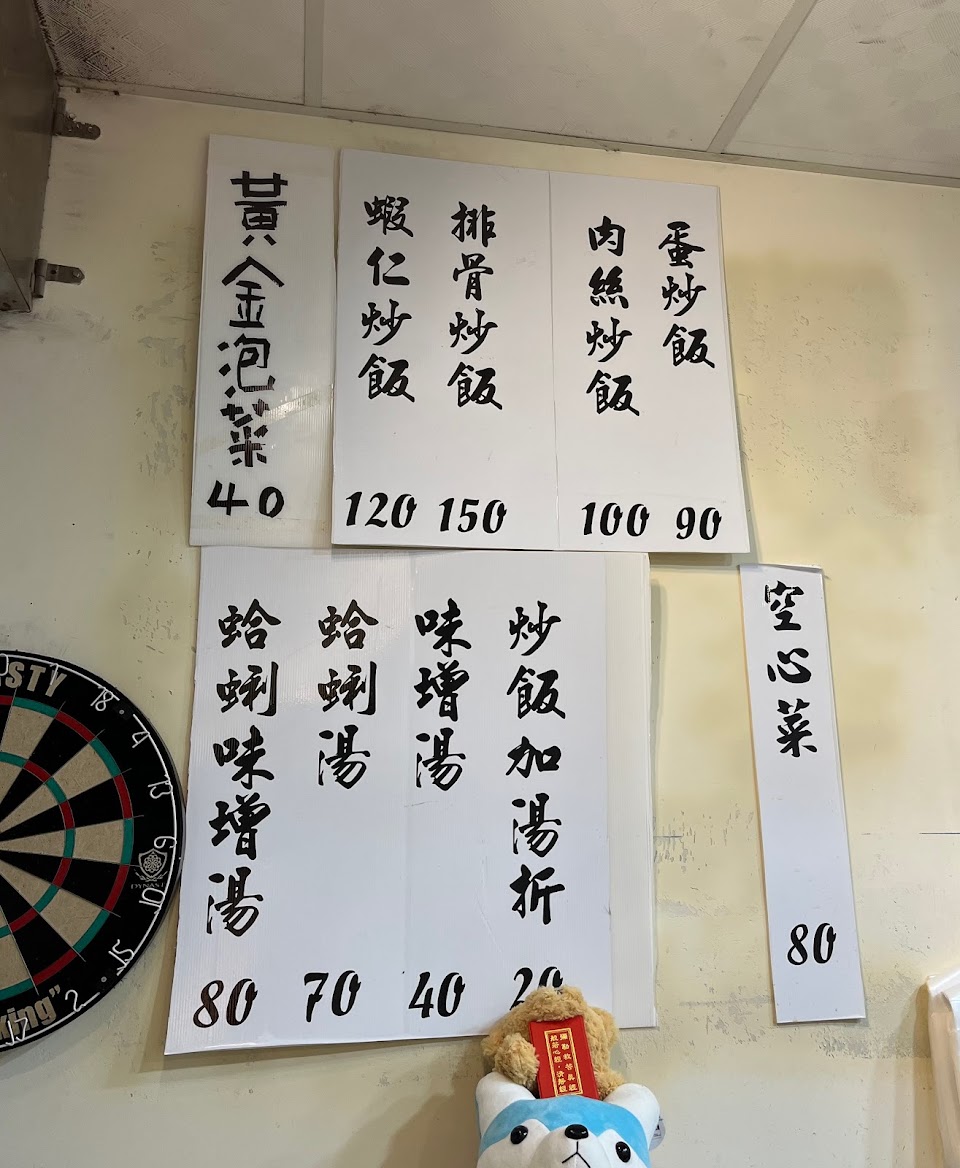 蛋炒飯 90
肉絲炒飯 100
排骨炒飯 150
蝦仁炒飯 120
黃金泡菜 40
空心菜 80
炒飯加湯折 20
味增湯 40
蛤蜊湯 70
蛤蜊味增湯 80
STY
18
4
13
6
10
15
2
17
DYNASTY
king"